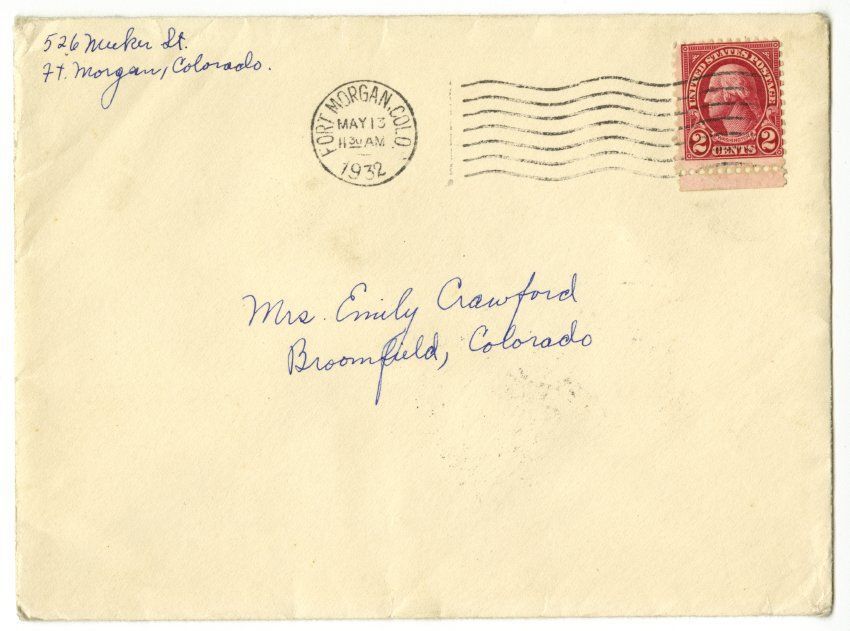 526 Meeker St.
Ft. Morgan, Colorado.
FORT MORGAN, COLO.
MAY 13
11 30 AM
1932
UNITED STATES POSTAGE
WASHINGTON
2 CENTS 2
Mrs. Emily Crawford
Broomfield, Colorado